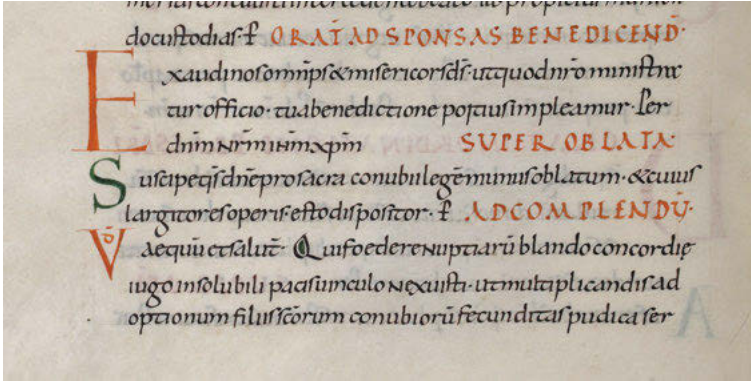 do custodias· ꝑ ORAT̄ AD SPONSAS BENEDICEND̄·
Exaudi nos om̄ps & misericors d̄s· ut quod nr̄o ministra
tur officio· tua benedictione potius impleamur· Per
dn̄m nr̄m ih̄m xp̄m SUPER OBLATA·
Suscipe q̄s dn̄e pro sacra conubii lege munus oblatum· & cuius
largitor es operis· esto dispositor· ꝑ AD COMPLENDŪ·
VD aequū et salut̄· Qui foedere nuptiarū blando concordię
iugo insolubili pacis uinculo nexuisti· ut multiplicandis ad
optionum filiis sc̄orum conubiorū fecunditas pudica ser